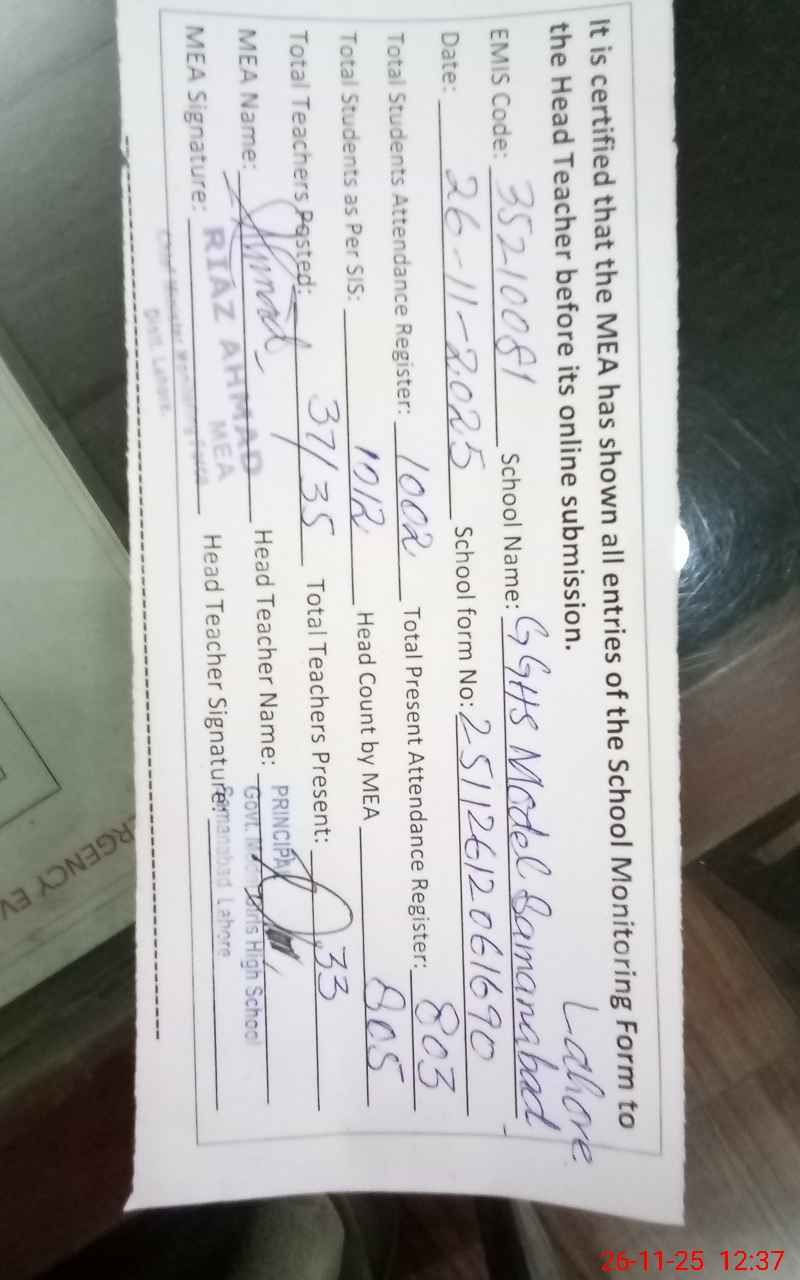 It is certified that the MEA has shown all entries of the School Monitoring Form to
the Head Teacher before its online submission.
Lahore
EMIS Code: 35210081 School Name: GGHS Model Samanabad
Date: 26-11-2025 School form No: 25112612061690
Total Students Attendance Register: 1002 Total Present Attendance Register: 803
Total Students as Per SIS: 1012 Head Count by MEA 805
Total Teachers Posted: 37/35 Total Teachers Present: 33
MEA Name: Head Teacher Name:
MEA Signature: Head Teacher Signature:
RIAZ AHMAD
MEA
Chief Minister Monitoring Force
Distt. Lahore.
PRINCIPAL
Govt. Model Girls High School
Samanabad Lahore
RGENCY EV
26-11-25 12:37